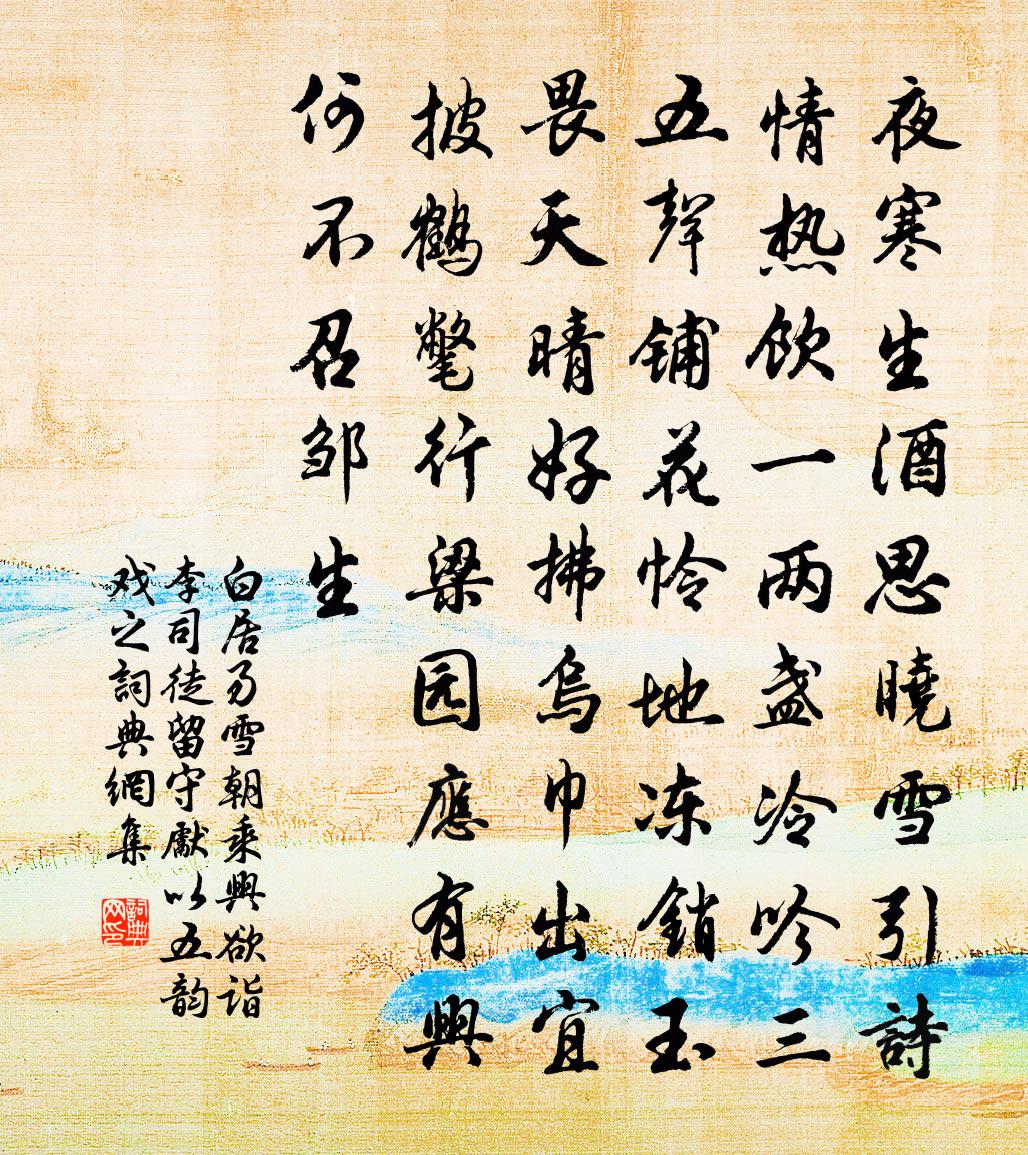 夜寒生酒思曉雪引詩
情热飲一两盏冷吟三
五聲铺花怜地冻銷玉
畏天晴好拂烏巾出宜
披鶴氅行梁园應有興
何不召邹生
白居易雪朝乘興欲诣
李司徒留守獻以五韵
戏之詞典網集
詞典网印